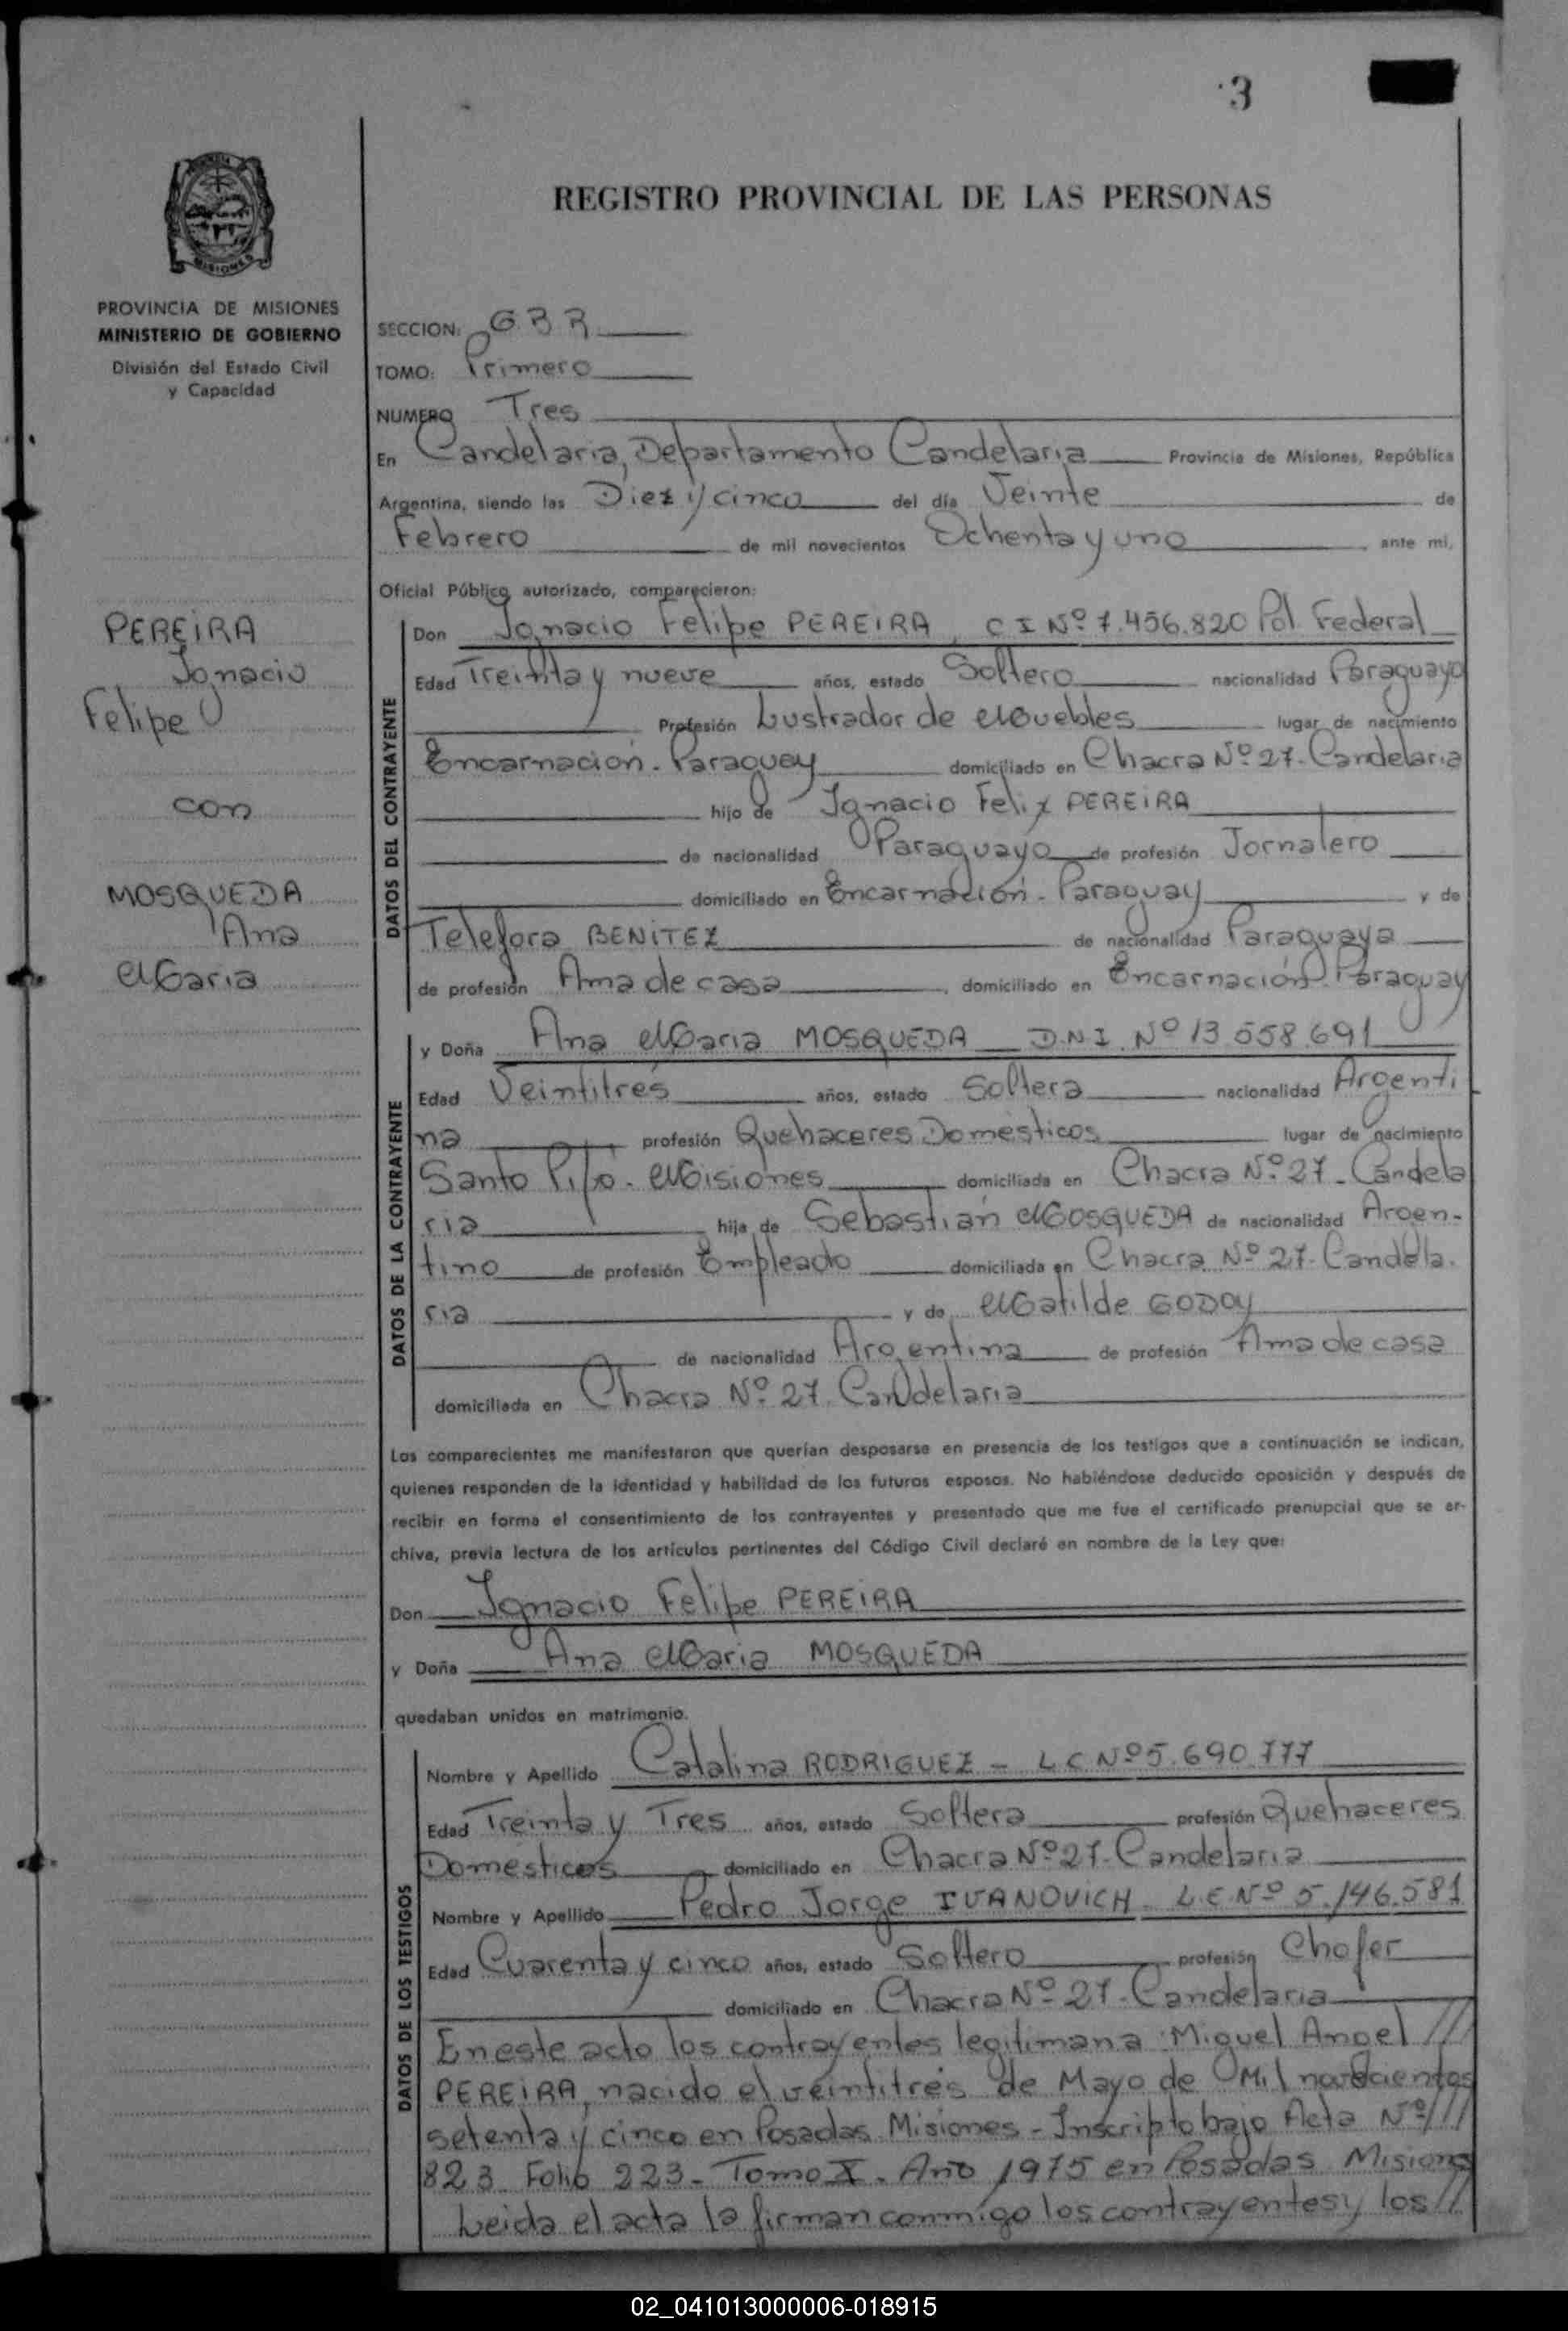 3
REGISTRO PROVINCIAL DE LAS PERSONAS
MISIONES
PROVINCIA DE MISIONES
MINISTERIO DE GOBIERNO
División del Estado Civil
y Capacidad
PEREIRA
Ignacio
Felipe
con
MOSQUEDA
Ana
Maria
SECCION: GBR
TOMO: Primero
NUMERO Tres
En Candelaria, Departamento Candelaria Provincia de Misiones, República
Argentina, siendo las Diez y cinco del día Veinte de
Febrero de mil novecientos Ochenta y uno ante mi,
Oficial Público autorizado, comparecieron:
DATOS DEL CONTRAYENTE
Don Ignacio Felipe PEREIRA, C I Nº 7.456.820 Pol. Federal
Edad Treinta y nueve años, estado Soltero nacionalidad Paraguayo
Profesión Lustrador de Muebles lugar de nacimiento
Encarnación. Paraguay domiciliado en Chacra Nº 27. Candelaria
hijo de Ignacio Felix PEREIRA
de nacionalidad Paraguayo de profesión Jornalero
domiciliado en Encarnación. Paraguay y de
Telefora BENITEZ de nacionalidad Paraguaya
de profesión Ama de casa, domiciliado en Encarnación. Paraguay
DATOS DE LA CONTRAYENTE
y Doña Ana Maria MOSQUEDA D.N.I. Nº 13.558.691
Edad Veintitrés años, estado Soltera nacionalidad Argenti
na profesión Quehaceres Domésticos lugar de nacimiento
Santo Pipó. Misiones domiciliada en Chacra Nº 27 - Candela
ria hija de Sebastián MOSQUEDA de nacionalidad Argen-
tino de profesión Empleado domiciliada en Chacra Nº 27. Candela.
ria y de Matilde GODOY
de nacionalidad Argentina de profesión Ama de casa
domiciliada en Chacra Nº 27. Candelaria
Los comparecientes me manifestaron que querían desposarse en presencia de los testigos que a continuación se indican,
quienes responden de la identidad y habilidad de los futuros esposos. No habiéndose deducido oposición y después de
recibir en forma el consentimiento de los contrayentes y presentado que me fue el certificado prenupcial que se ar-
chiva, previa lectura de los artículos pertinentes del Código Civil declaré en nombre de la Ley que:
Don Ignacio Felipe PEREIRA
y Doña Ana Maria MOSQUEDA
quedaban unidos en matrimonio.
DATOS DE LOS TESTIGOS
Nombre y Apellido Catalina RODRIGUEZ - L C Nº 5.690.777
Edad Treinta y Tres años, estado Soltera profesión Quehaceres
Domésticos domiciliado en Chacra Nº 27. Candelaria
Nombre y Apellido Pedro Jorge IVANOVICH L.E. Nº 5.146.581
Edad Cuarenta y cinco años, estado Soltero profesión Chofer
domiciliado en Chacra Nº 27. Candelaria
En este acto los contrayentes legitiman a: Miguel Angel //
PEREIRA, nacido el veintitrés de Mayo de Mil novecientos
setenta y cinco en Posadas Misiones - Inscripto bajo Acta Nº ///
823 Folio 223 - Tomo X. Año 1975 en Posadas Misiones
Leida el acta la firman conmigo los contrayentes y los //
02_041013000006-018915